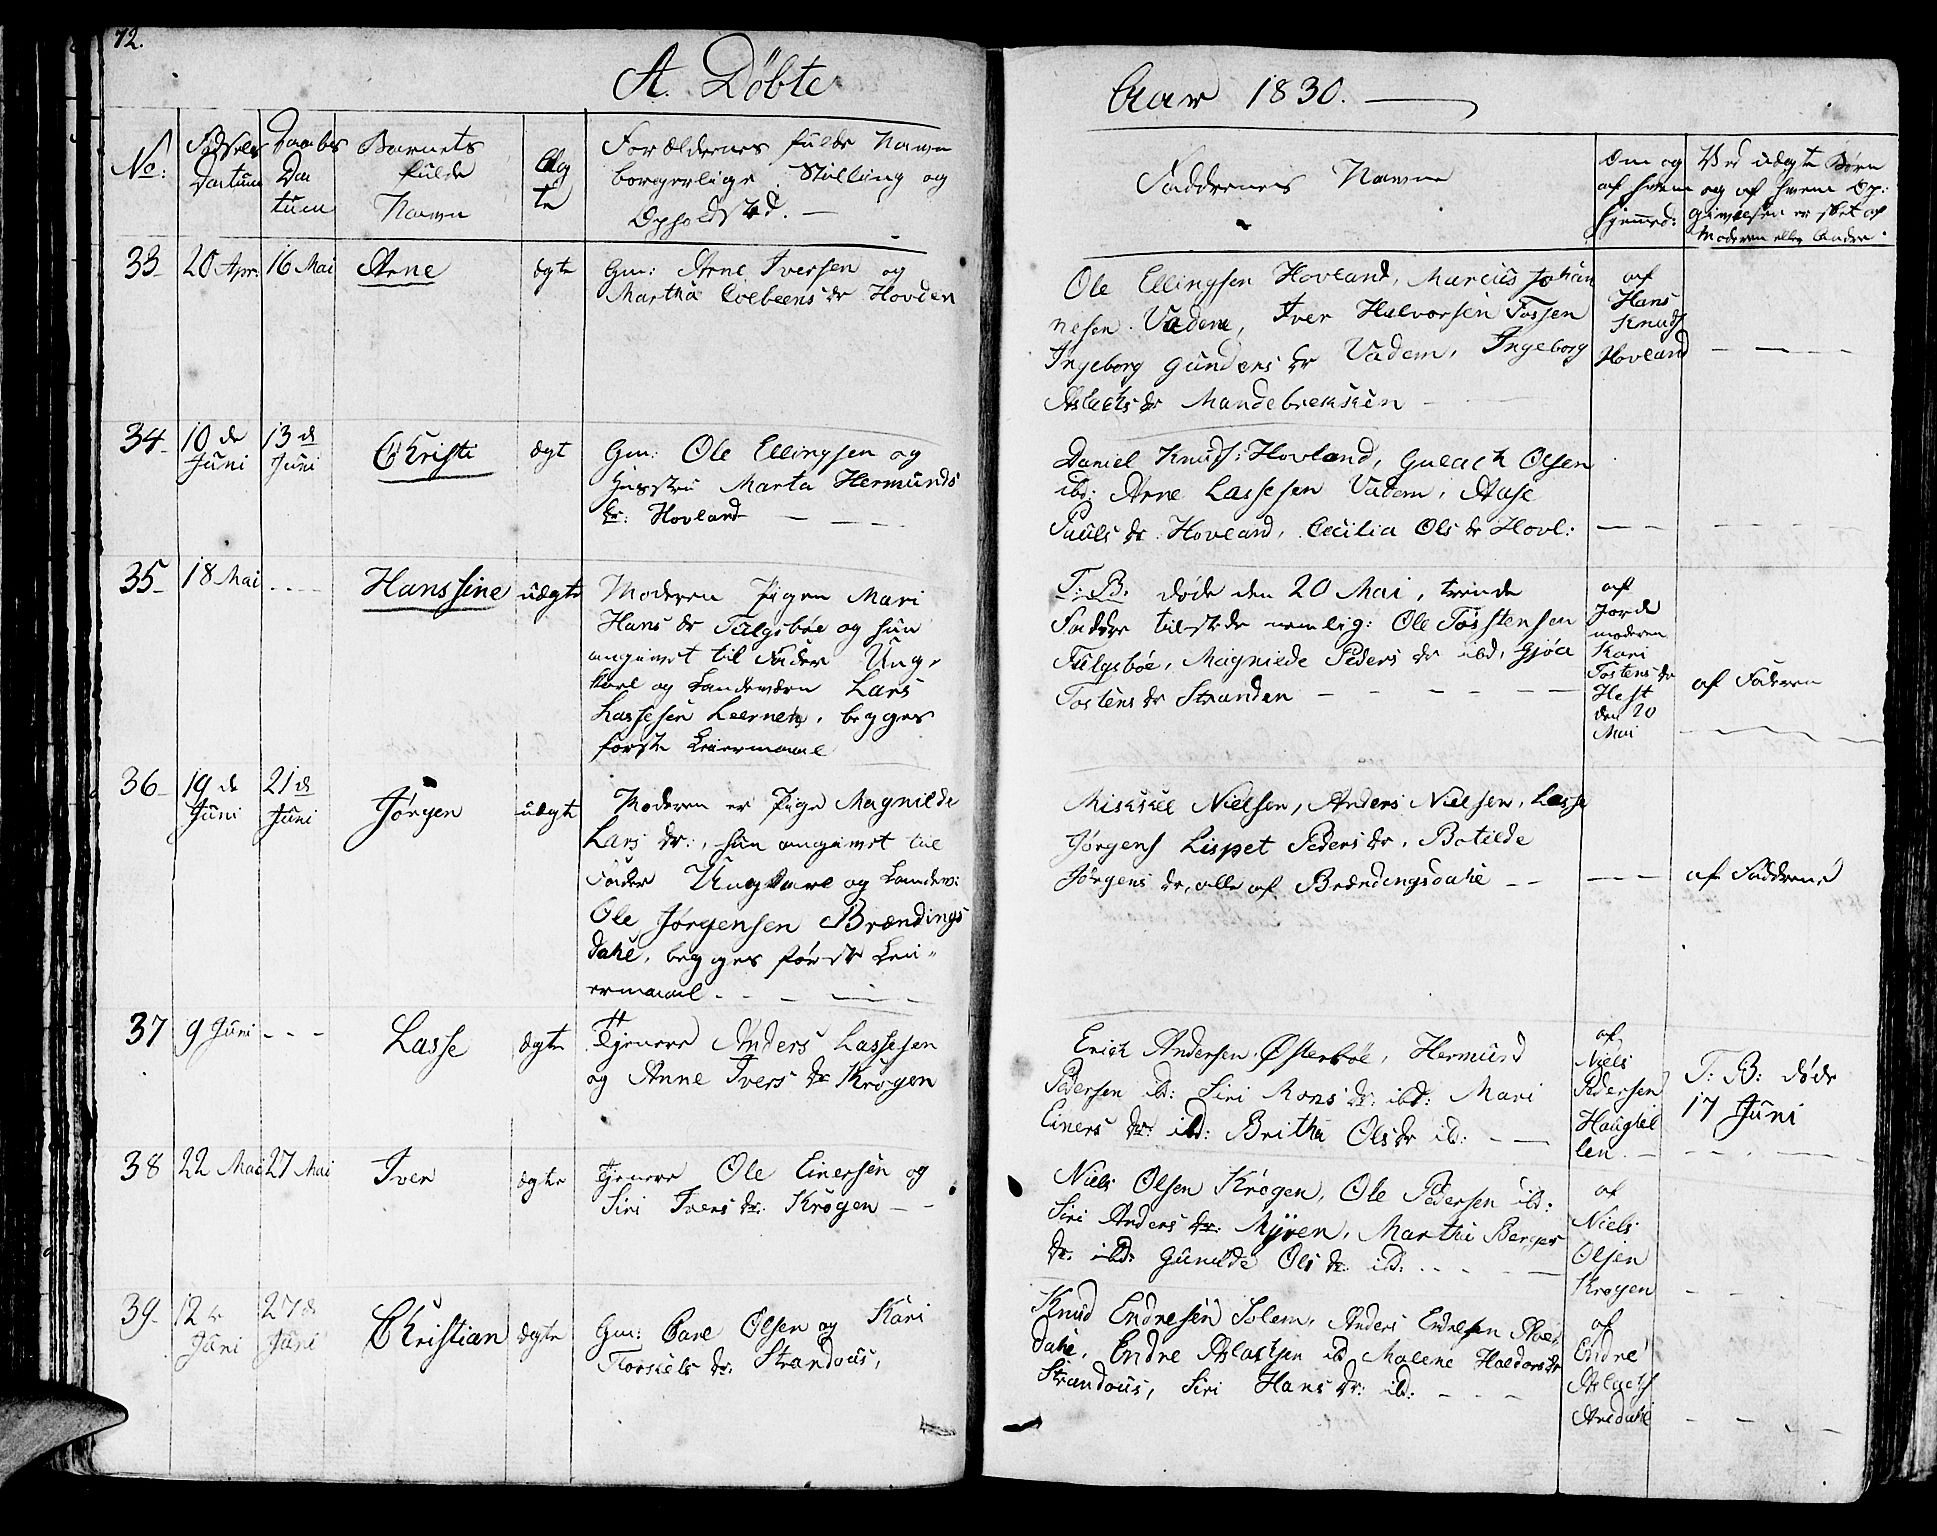 72.
A. Døbte
Aar 1830.
No:
Fødsels
Datum
Daabs
Da
tum
Barnets
fulde
Navn
Æg
te
Forældernes fulde Navn
borgerlige Stilling og
Opholdsted.
Faddernes Navne
Om og
af hvem
hjemmed:
Ved uægte Børn
og af hvem Op:
givelsen er skeet af
Moderen eller Andre.
33 20 Apr. 16 Mai Arne ægte
Gm: Arne Iversen og
Martha Colbeens dr Hovden
Ole Ellingsen Hovland, Marcus Johan
nesen Vadem, Iver Halvorsen Fossen
Ingeborg Gunders dr Vadem, Ingeborg
Aslachs dr Mandebrekken
af
Hans
Knuds
Hovland
34 10 de Juni 13 d Juni Christi ægt
Gm: Ole Ellingsen og
Hustru Marta Hermunds
dr: Hovland
Daniel Knuds: Hovland, Gulach Olsen
ibd: Arne Lassesen Vadem, Aase
Pauls dr Hovland, Cecilia Ols dr Hovl:
35 18 Mai Hanssine uægte
Moderen Pigen Mari
Hans dr Tulgsbøe og hun
angivet til Fader Ung
karl og Landeværn Lars
Lassesen Leernes, begges
første Leiermaal
T: B. døde den 20 Mai, trende
Faddre tilstede nemlig: Ole Tostensen
Tulgsbøe, Magnilde Peders dr ibd, Gjøa
Tostens dr Stranden
af
Jorde
moderen
Kari
Tostens dr
Hest
den 20
Mai
af Faderen
36 19 de Juni 21 d Juni Jørgen uægte
Moderen er Pige Magnilde
Lars dr:, hun angivet til
Fader Ungkarl og Landev:
Ole Jørgensen Brændings
dahl, begges første Lei
ermaal
Miskkel Nielsen, Anders Nielsen, Lasse
Jørgens Lispet Peders dr, Botilde
Jørgens dr, alle af Brændingsdahl
af Faddrene
37 9 Juni Lasse ægte
Tjenere Anders Lassesen
og Anne Ivers dr Krøgen
Erich Andersen Østerbøe, Hermund
Pedersen ib: Siri Mons dr: ibd: Mari
Einers dr: ibd: Britha Ols dr ib:
af
Niels
Pedersen
Haugtel
len
T: B: døde
17 Juni
38 22 Mai 27 Mai Iver ægte
Tjenere Ole Einersen og
Siri Ivers dr: Krøgen
Niels Olsen Krøgen, Ole Pedersen ib:
Siri Anders dr: Myren, Martha Berges
dr. ibd: Gunilde Ols dr ib:
af
Niels
Olsen
Krøgen
39 12 d Juni 27 d Juni Christian ægte
Gm: Carl Olsen og Kari
Torkiels dr. Strandous,
Knud Endresen Solem, Anders Endresen
dahl, Endre Aslachsen ib Malene Haldors dr
Strandous, Siri Hans dr: ib:
af
Endre
Aslachs